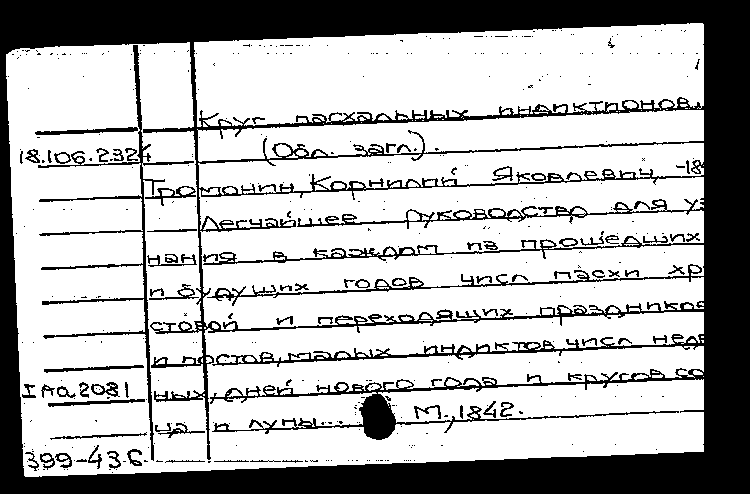 Круг пасхальных индиктионов..
18.106.2.324 (Обл. загл.).
Тромонин, Корнилий Яковлевич, -18
Легчайшее руководство для уз
нания в каждом из прошедших
и будущих годов числ пасхи хри
стовой и переходящих праздников
и постов, малых индиктов, числ неде
IAa2081 ных, дней нового года и кругов со
ца и луны... М., 1842.
399-436